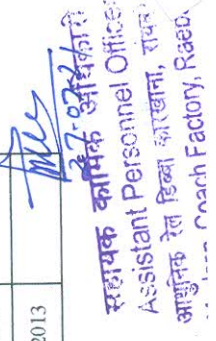 2013
सहायक कार्मिक अधिकारी
Assistant Personnel Officer
आधुनिक रेल डिब्बा कारखाना,
Coach Factory,